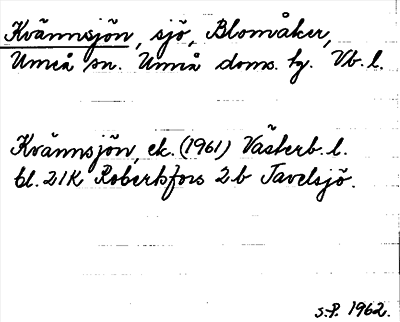 Kvännsjön, sjö, Blomåker,
Umeå sn. Umeå doms. hg. Vb. l.
Kvännsjön, ek. (1961) Västerb. l.
bl. 21K Robertsfors 2b Tavelsjö.
S.P. 1962.